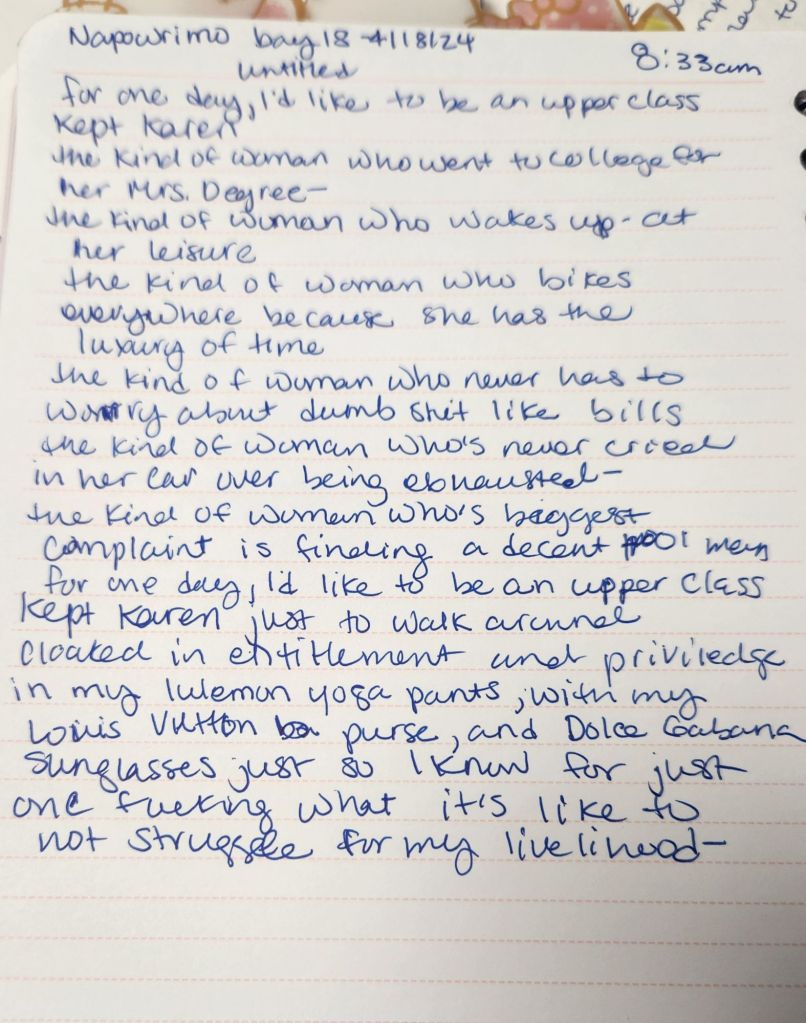 Napowrimo Day 18 - 4/18/24
8:33am
Untitled
for one day, I'd like to be an upper class
Kept Karen
the kind of woman who went to college for
her Mrs. Degree-
the kind of woman who wakes up - at
her leisure
the kind of woman who bikes
everywhere because she has the
luxury of time
the kind of woman who never has to
worry about dumb shit like bills
the kind of woman who's never cried
in her car over being exhausted-
the kind of woman who's biggest
complaint is finding a decent pool man
for one day, I'd like to be an upper class
Kept Karen just to walk around
cloaked in entitlement and priviledge
in my lulemon yoga pants, with my
Louis Vutton purse, and Dolce Gabana
sunglasses just so I know for just
one fucking what it's like to
not struggle for my livelihood-